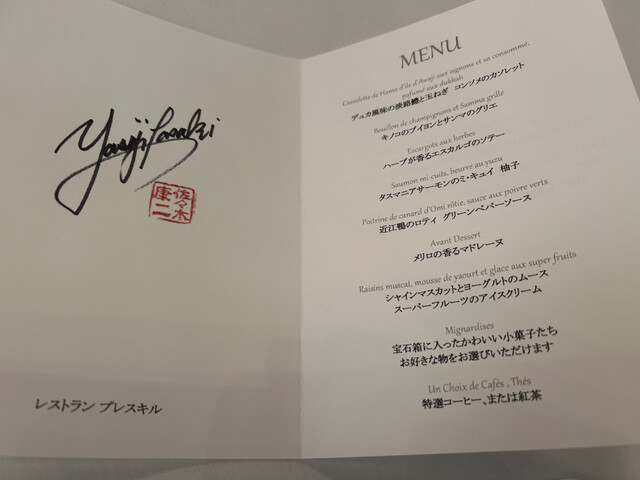 Yasuji Sasaki
佐々木
康二
レストラン プレスキル
MENU
Cassolette de Hamo d'île d'Awaji aux oignons et so consommé,
pafumé aux dubbah
デュカ風味の淡路鱧と玉ねぎ コンソメのカソレット
Bouillon de champignons et Samma grillé
キノコのブイヨンとサンマのグリエ
Escargots aux herbes
ハーブが香るエスカルゴのソテー
Saumon mi-cuits, beurre au yuzu
タスマニアサーモンのミ・キュイ 柚子
Poitrine de canard d'Omi rôtie, sauce aux poivre verts
近江鴨のロティ グリーンペパーソース
Avant Dessert
メリロの香るマドレーヌ
Raisins muscat, mousse de yaourt et glace aux super fruits
シャインマスカットとヨーグルトのムース
スーパーフルーツのアイスクリーム
Mignardises
宝石箱に入ったかわいい小菓子たち
お好きな物をお選びいただけます
Un Choix de Cafés , Thés
特選コーヒー、または紅茶